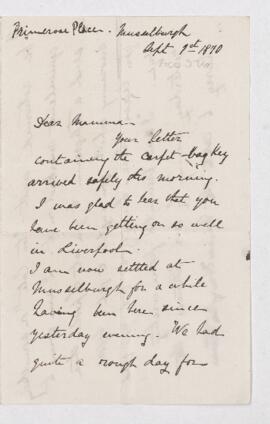 Primrose Place. Musselburgh
Sept 1st 1870
Dear Mamma
Your letter
containing the carpet-bag key
arrived safely this morning.
I was glad to hear that you
have been getting on so well
in Liverpool.
I am now settled at
Musselburgh for a while
having been here since
yesterday evening. We had
quite a rough day for